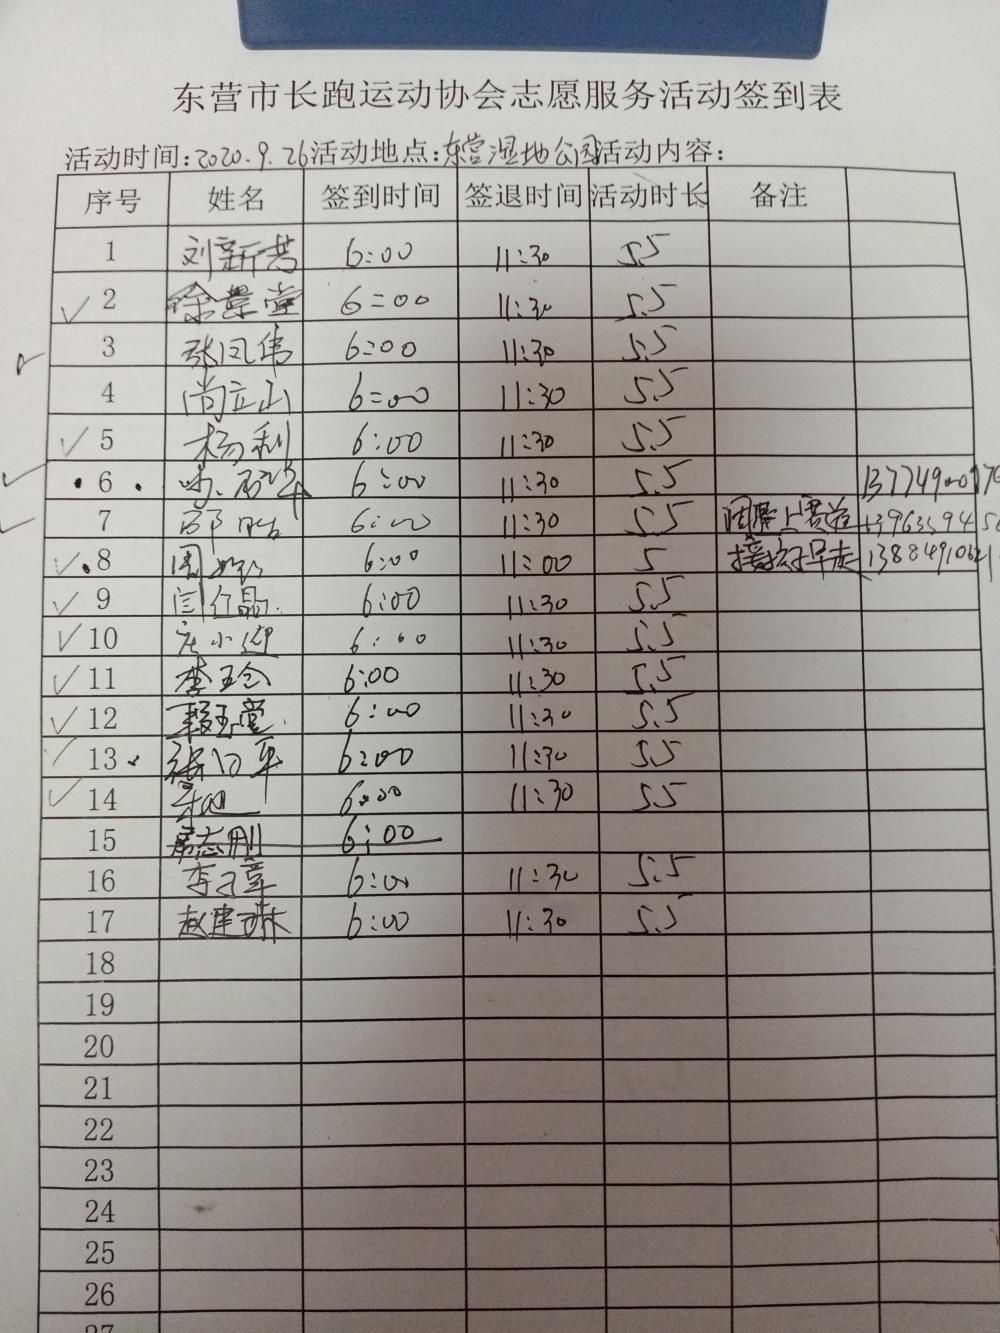 东营市长跑运动协会志愿服务活动签到表
活动时间:2020.9.26活动地点:东营湿地公园活动内容:
序号 姓名 签到时间 签退时间 活动时长 备注
1 刘新芳 6:00 11:30 5.5
2 徐景堂 6:00 11:30 5.5
3 张凤伟 6:00 11:30 5.5
4 尚立山 6:00 11:30 5.5
5 杨利 6:00 11:30 5.5
6 6:00 11:30 5.5
7 6:00 11:30 5.5
8 周 6:00 11:00 5 早走
9 闫 6:00 11:30 5.5
10 庄小迎 6:00 11:30 5.5
11 李玉 6:00 11:30 5.5
12 玉堂 6:00 11:30 5.5
13 6:00 11:30 5.5
14 6:00 11:30 5.5
15 志刚 6:00
16 李 6:00 11:30 5.5
17 赵建琳 6:00 11:30 5.5
18
19
20
21
22
23
24
25
26
27